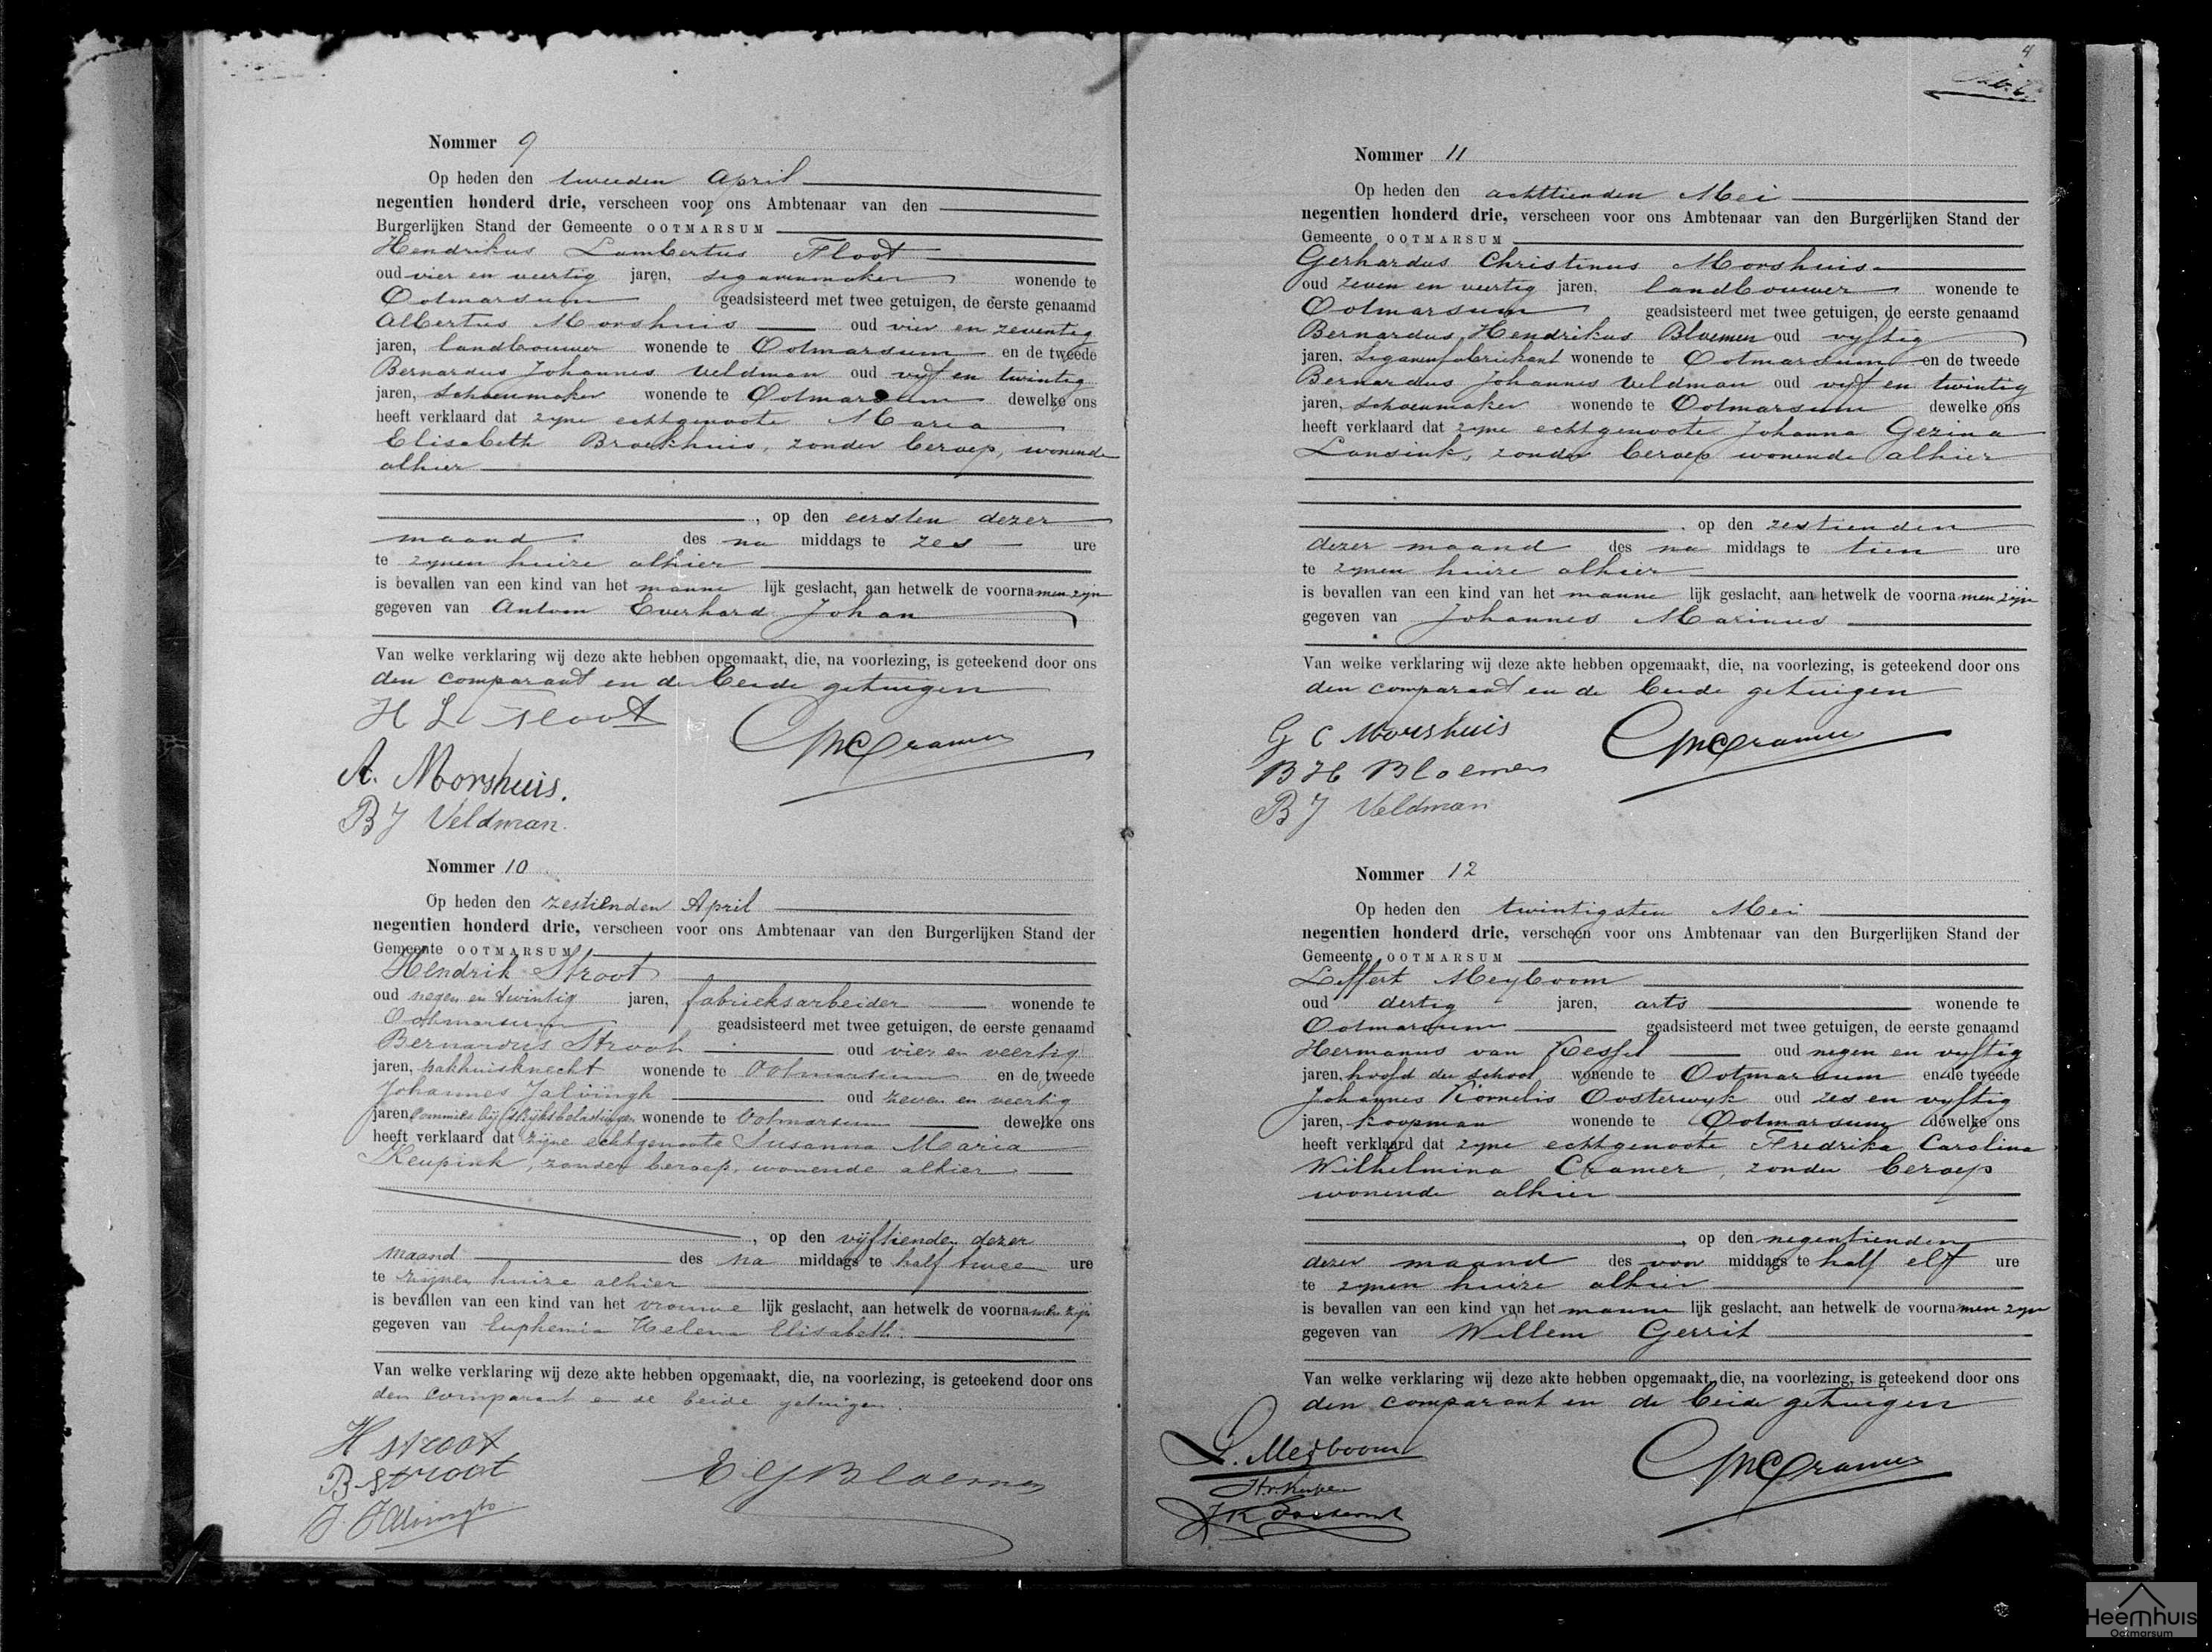 4
Nommer 9
Op heden den tweeden April
negentien honderd drie, verscheen voor ons Ambtenaar van den
Burgerlijken Stand der Gemeente OOTMARSUM
Hendrikus Lambertus Floot
oud vier en veertig jaren, sigarenmaker wonende te
Ootmarsum geadsisteerd met twee getuigen, de eerste genaamd
Albertus Morshuis oud vier en zeventig
jaren, landbouwer wonende te Ootmarsum en de tweede
Bernardus Johannes Veldman oud vijf en twintig
jaren, schoenmaker wonende te Ootmarsum dewelke ons
heeft verklaard dat zyne echtgenoote Maria
Elisabeth Broekhuis, zonder beroep, wonende
alhier
, op den eersten dezer
maand des na middags te zes ure
te zynen huize alhier
is bevallen van een kind van het manne lijk geslacht, aan hetwelk de voornamen zijn
gegeven van Antoon Everhard Johan
Van welke verklaring wij deze akte hebben opgemaakt, die, na voorlezing, is geteekend door ons
den comparant en de beide getuigen
H L Floot
Cramer
A. Morshuis.
B J Veldman.
Nommer 10
Op heden den zestienden April
negentien honderd drie, verscheen voor ons Ambtenaar van den Burgerlijken Stand der
Gemeente OOTMARSUM
Hendrik Stroot
oud negen en twintig jaren, fabrieksarbeider wonende te
Ootmarsum geadsisteerd met twee getuigen, de eerste genaamd
Bernardus Stroot oud vier en veertig
jaren, pakhuisknecht wonende te Ootmarsum en de tweede
Johannes Jalvingh oud zeven en veertig
jaren commies bij 's Rijks belastingen wonende te Ootmarsum dewelke ons
heeft verklaard dat zijne echtgenoote Susanna Maria
Keupink, zonder beroep, wonende alhier
, op den vijftienden dezer
maand des na middags te half twee ure
te zijnen huize alhier
is bevallen van een kind van het vrouwe lijk geslacht, aan hetwelk de voornamen zijn
gegeven van Euphemia Helena Elisabeth.
Van welke verklaring wij deze akte hebben opgemaakt, die, na voorlezing, is geteekend door ons
den comparant en de beide getuigen.
H Stroot
B Stroot
E G J Bloemen
J. Jalvingh
Nommer 11
Op heden den achttienden Mei
negentien honderd drie, verscheen voor ons Ambtenaar van den Burgerlijken Stand der
Gemeente OOTMARSUM
Gerhardus Christinus Morshuis
oud zeven en veertig jaren, landbouwer wonende te
Ootmarsum geadsisteerd met twee getuigen, de eerste genaamd
Bernardus Hendrikus Bloemen oud vyftig
jaren, sigarenfabrikant wonende te Ootmarsum en de tweede
Bernardus Johannes Veldman oud vyf en twintig
jaren, schoenmaker wonende te Ootmarsum dewelke ons
heeft verklaard dat zyne echtgenoote Johanna Gezina
Lansink, zonder beroep wonende alhier
, op den zestienden
dezer maand des na middags te tien ure
te zynen huize alhier
is bevallen van een kind van het manne lijk geslacht, aan hetwelk de voornamen zijn
gegeven van Johannes Marinus
Van welke verklaring wij deze akte hebben opgemaakt, die, na voorlezing, is geteekend door ons
den comparant en de beide getuigen
G C Morshuis
Cramer
B H Bloemen
B J Veldman
Nommer 12
Op heden den twintigsten Mei
negentien honderd drie, verscheen voor ons Ambtenaar van den Burgerlijken Stand der
Gemeente OOTMARSUM
Leffert Meyboom
oud dertig jaren, arts wonende te
Ootmarsum geadsisteerd met twee getuigen, de eerste genaamd
Hermanus van Kessel oud negen en vyftig
jaren, hoofd der school wonende te Ootmarsum en de tweede
Johannes Kornelis Oosterwyk oud zes en vyftig
jaren, koopman wonende te Ootmarsum dewelke ons
heeft verklaard dat zyne echtgenoote Fredrika Carolina
Wilhelmina Cramer, zonder beroep
wonende alhier
, op den negentienden
dezer maand des voor middags te half elf ure
te zynen huize alhier
is bevallen van een kind van het manne lijk geslacht, aan hetwelk de voornamen zyn
gegeven van Willem Gerrit
Van welke verklaring wij deze akte hebben opgemaakt, die, na voorlezing, is geteekend door ons
den comparant en de beide getuigen
L. Meyboom
Cramer
Heemhuis
Ootmarsum